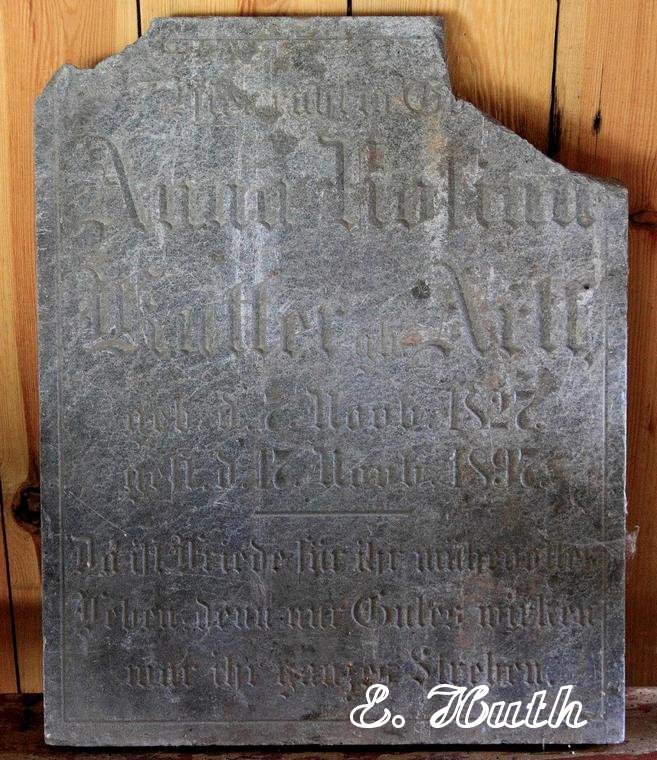 Hier ruht in G
Anna Rosina
geb. Arlt,
geb. d. 7. Novb. 1827.
gest. d. 17. Novb. 1897.
Da ist Friede für ihr mühevolles
Leben, denn nur Gutes wirken
war ihr ganzes Streben.
E. Huth